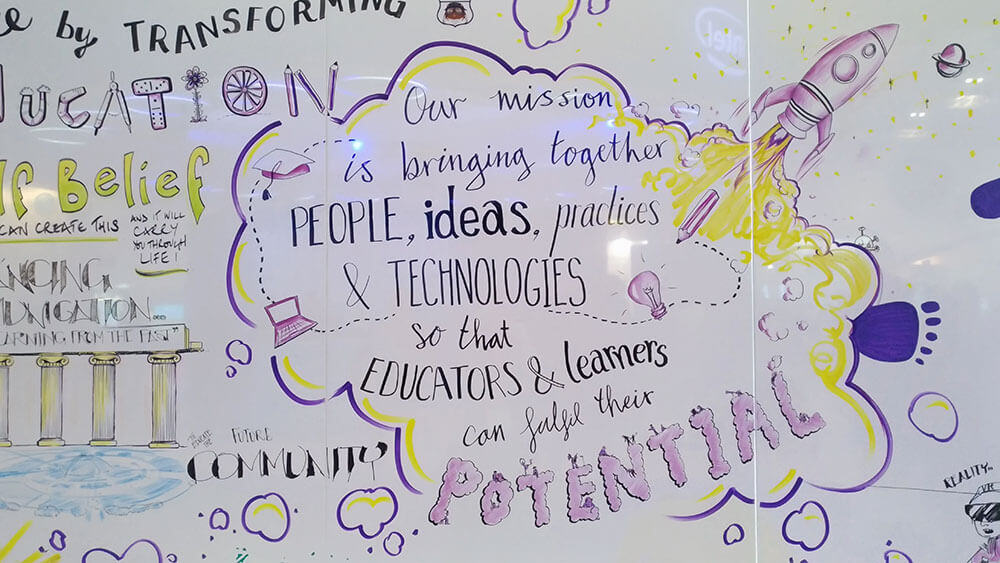 by TRANSFORMING
intel
EDUCATION
Belief
CAN CREATE THIS
AND IT WILL
CARRY
YOU THROUGH
LIFE!
LEARNING FROM THE PAST"
FUTURE
COMMUNITY
Our mission
is bringing together
PEOPLE, ideas, practices
& TECHNOLOGIES
so that
EDUCATORS & learners
can fulfil their
POTENTIAL
REALITY
VR